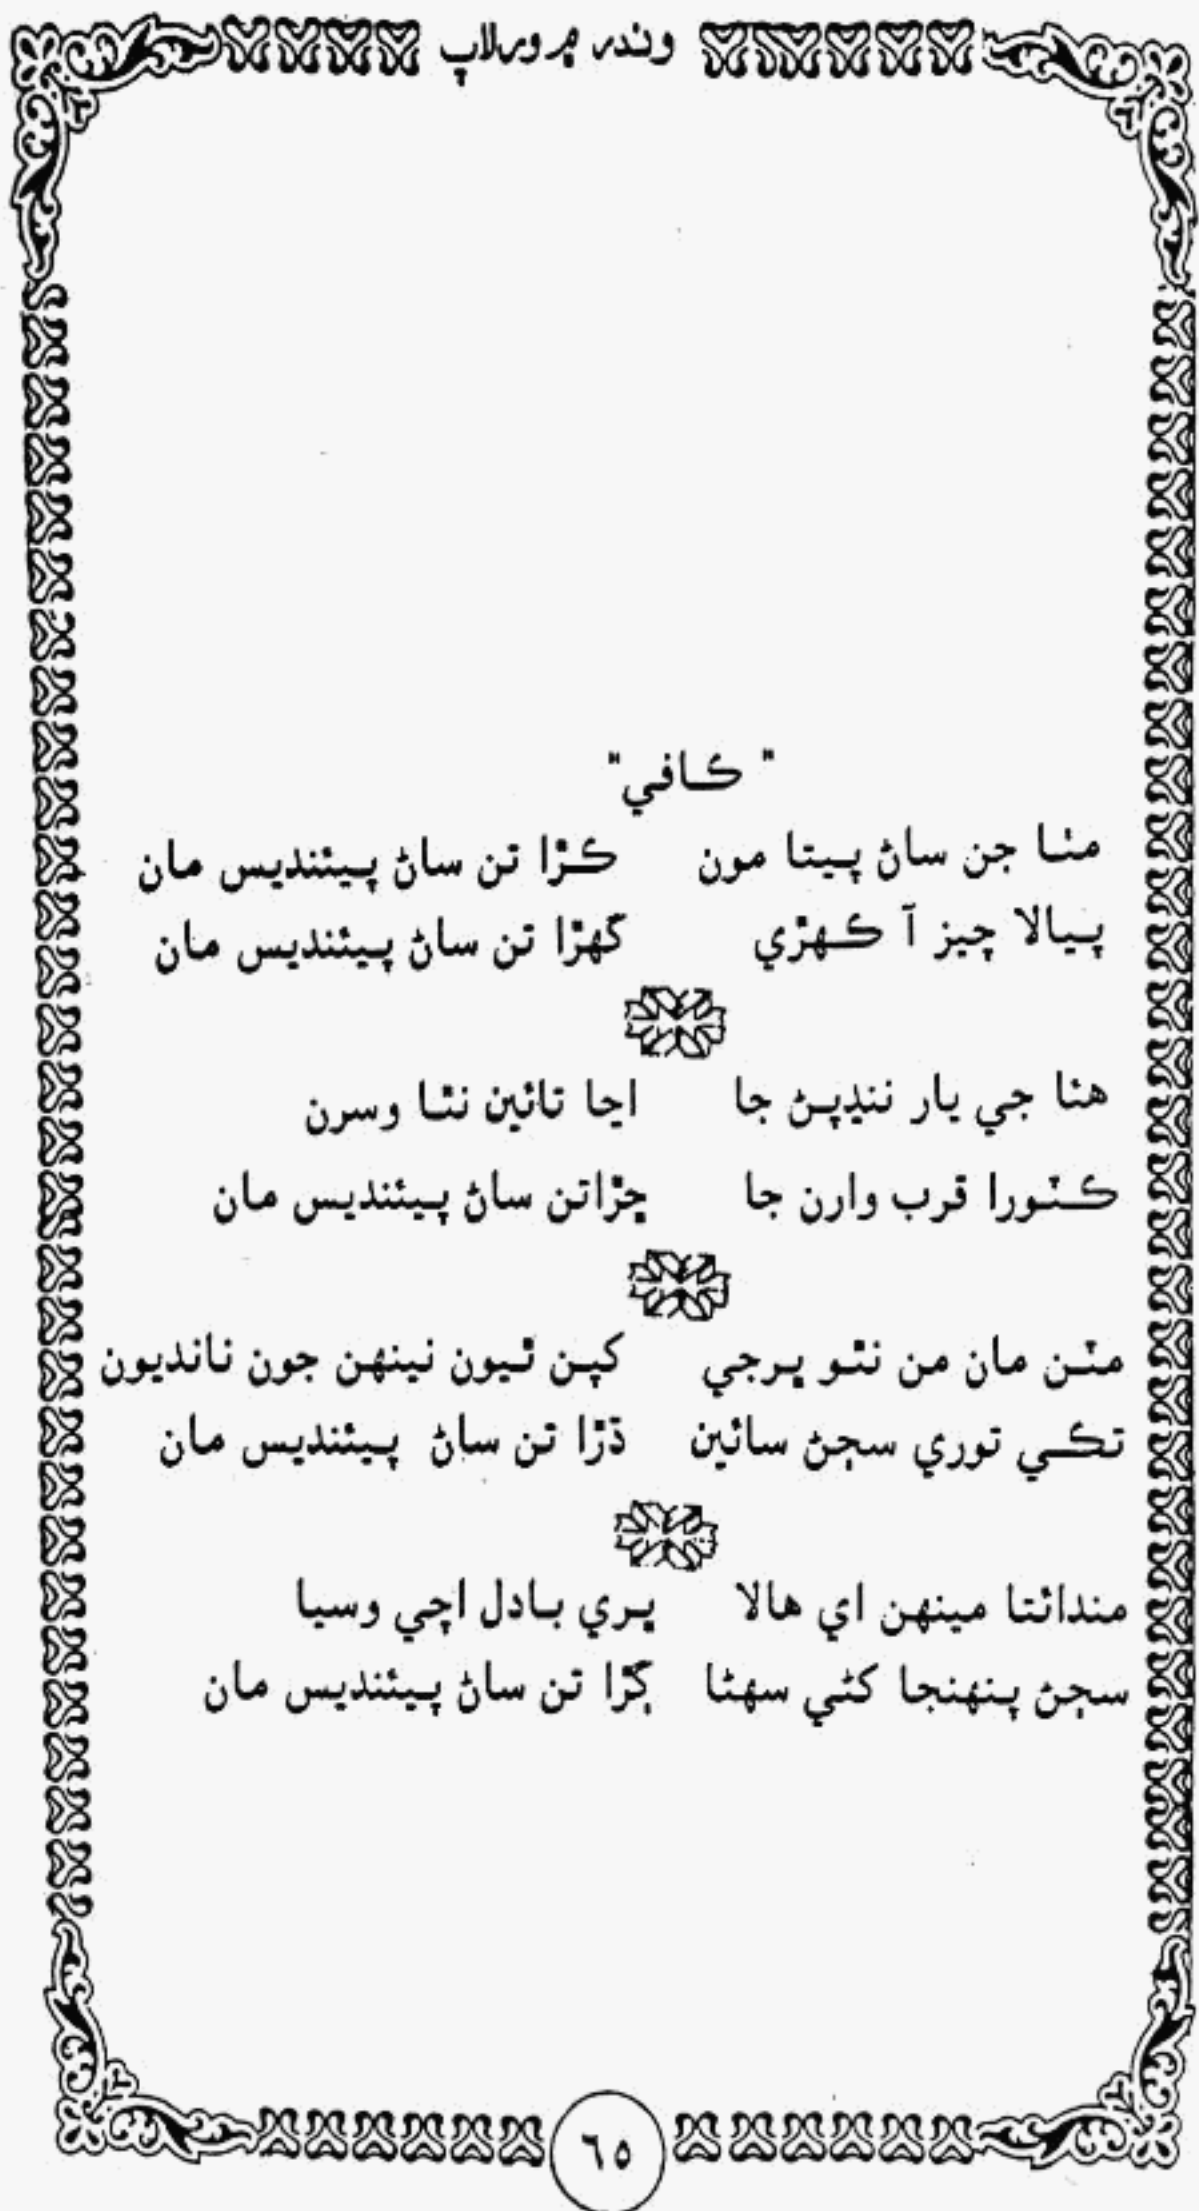 وندر ۾ ورلاپ
" ڪافي"
مٺا جن ساڻ پيتا مون ڪڙا تن ساڻ پيئنديس مان
پيالا چيز آ ڪهڙي گهڙا تن ساڻ پيئنديس مان
هئا جي يار ننڍپڻ جا اڃا تائين نٿا وسرن
ڪٽورا قرب وارن جا چڙاتن ساڻ پيئنديس مان
مٽن مان من نٿو ڀرجي کپن ٿيون نينهن جون نانديون
تڪي توري سڄڻ سائين ڌڙا تن ساڻ پيئنديس مان
مندائتا مينهن اي هالا ڀري بادل اچي وسيا
سڄڻ پنهنجا کڻي سهڻا ڳڙا تن ساڻ پيئنديس مان
٦٥